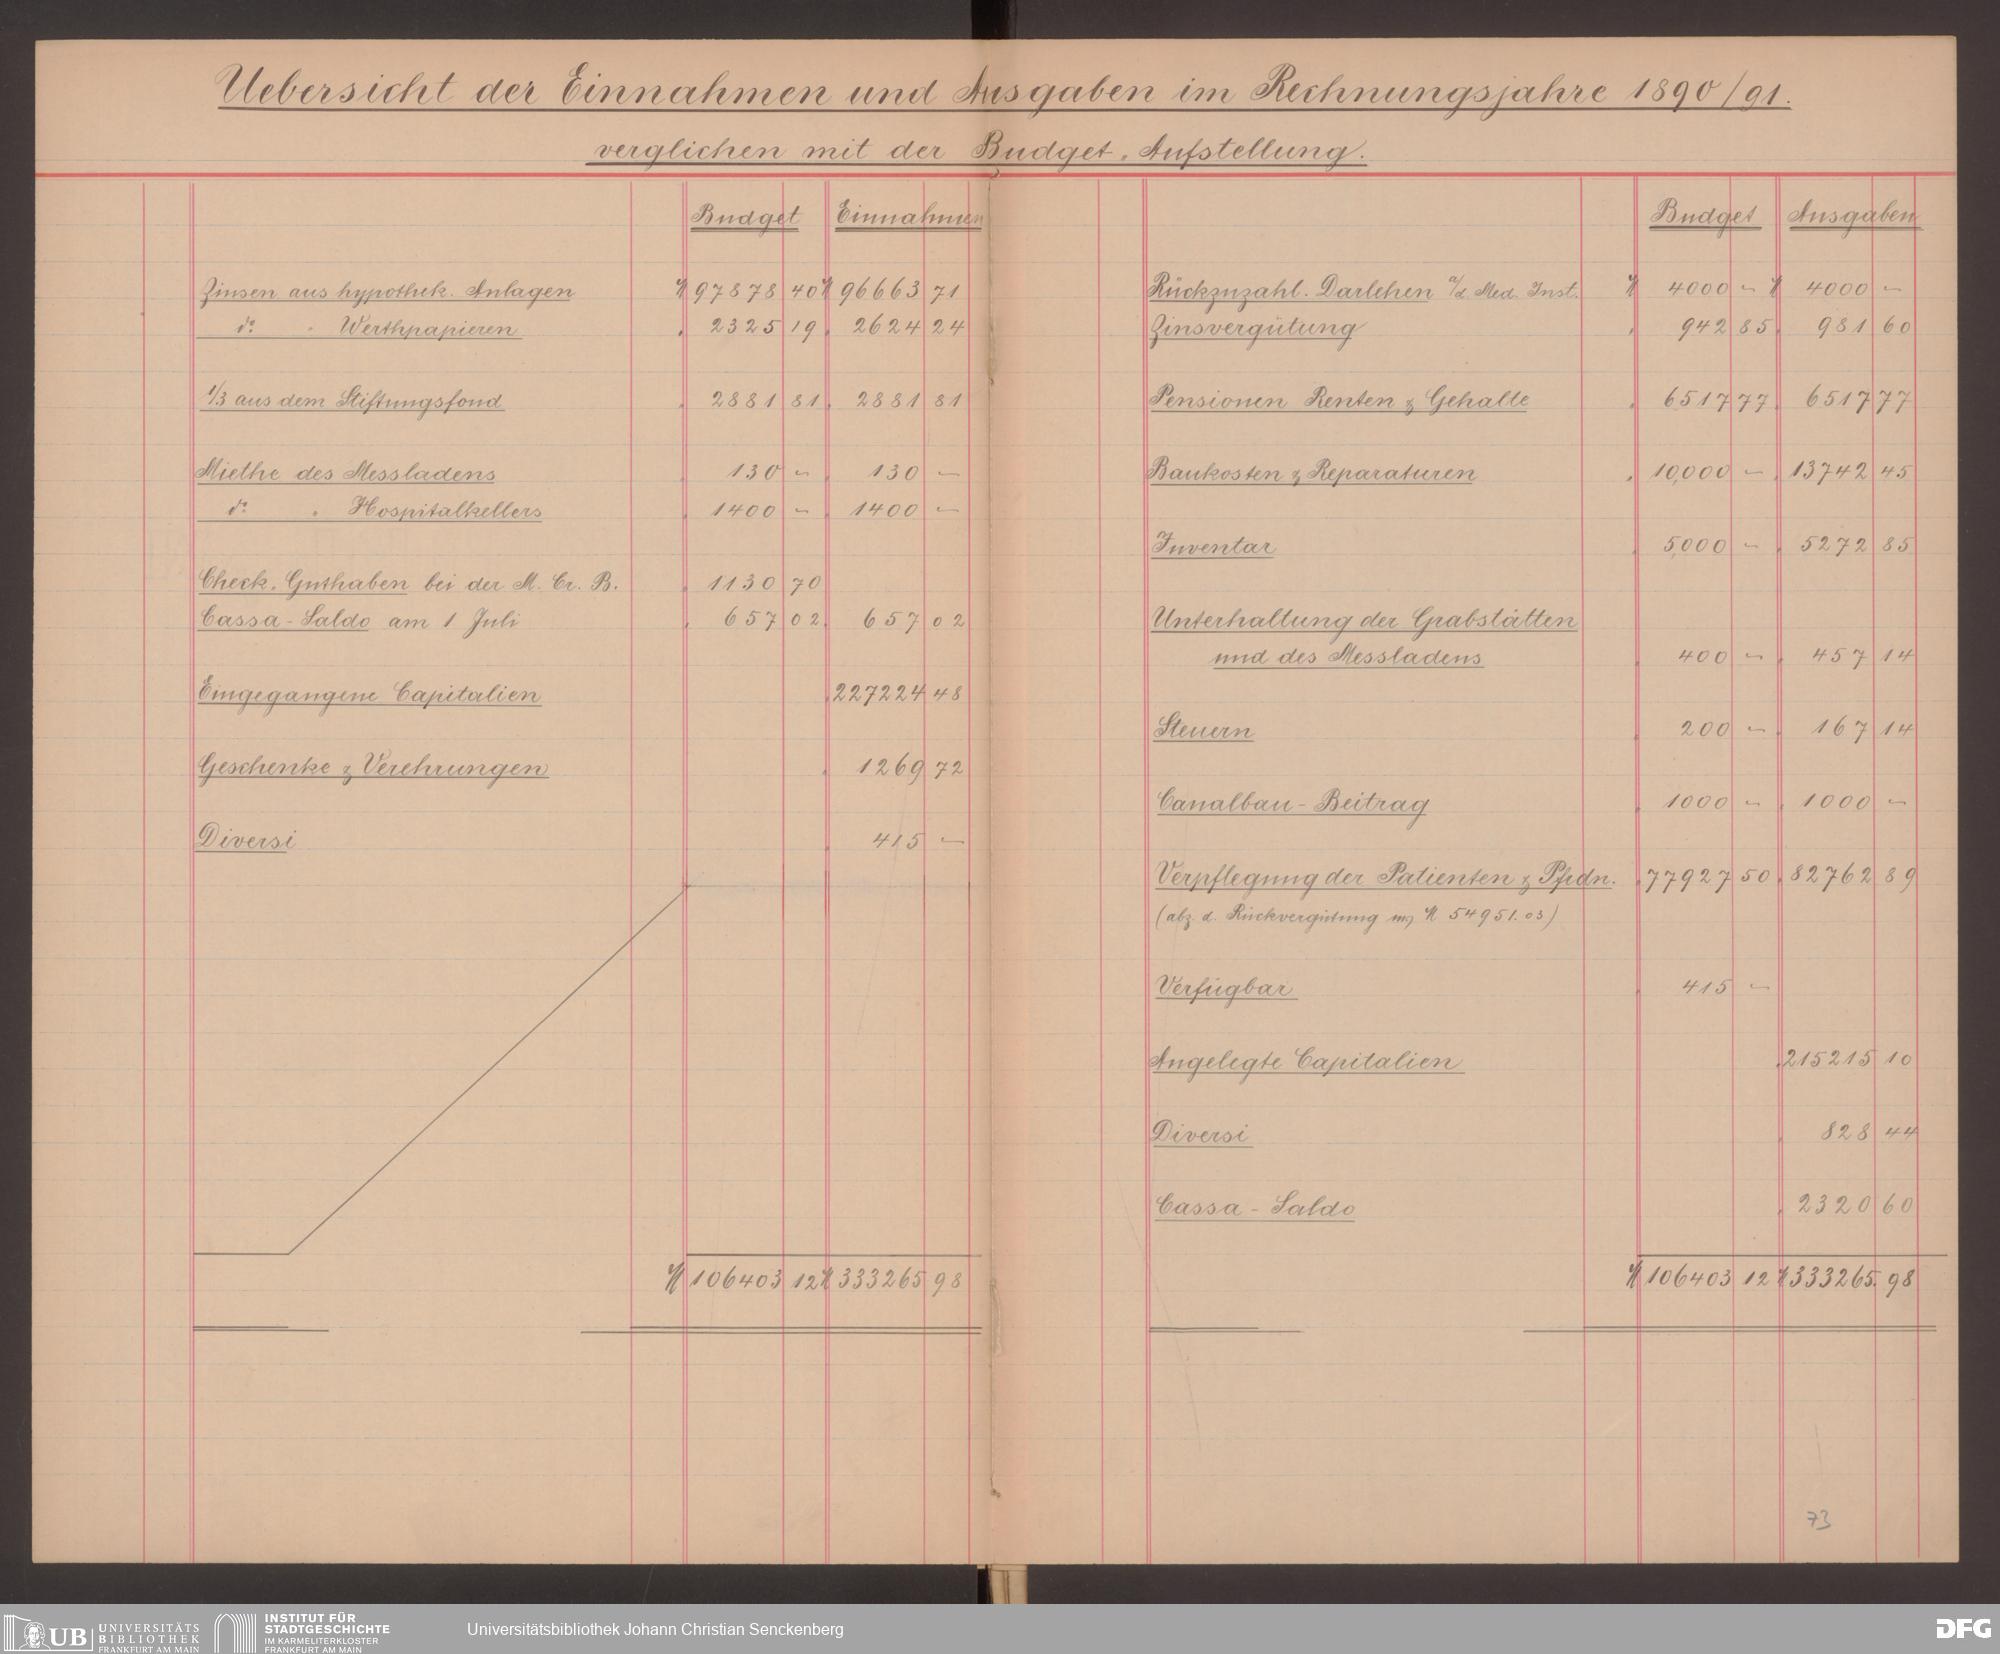 Uebersicht der Einnahmen und Ausgaben im Rechnungsjahre 1890/91.
verglichen mit der Budget-Aufstellung.
Budget Einnahmen
Zinsen aus hypothek. Anlagen ℳ 97878 40 ℳ 96663 71
do " Werthpapieren " 2325 19 " 2624 24
1/3 aus dem Stiftungsfond " 2881 81 " 2881 81
Miethe des Messladens " 130 – " 130 –
do " Hospitalkellers " 1400 – " 1400 –
Check-Guthaben bei der M. Cr. B. " 1130 70
Cassa-Saldo am 1 Juli " 657 02 " 657 02
Eingegangene Capitalien " 227224 48
Geschenke & Verehrungen " 1269 72
Diversi " 415 –
ℳ 106403 12 ℳ 333265 98
Budget Ausgaben
Rückzuzahl. Darlehen a/d. Med. Inst. ℳ 4000 – ℳ 4000 –
Zinsvergütung " 942 85 " 981 60
Pensionen Renten & Gehalte " 6517 77 " 6517 77
Baukosten & Reparaturen " 10,000 – " 13742 45
Inventar " 5,000 – " 5272 85
Unterhaltung der Grabstätten
und des Messladens " 400 – " 457 14
Steuern " 200 – " 167 14
Canalbau-Beitrag " 1000 – " 1000 –
Verpflegung der Patienten & Pfrdn. " 77927 50 " 82762 89
(abz. d. Rückvergütung von ℳ 54951.03)
Verfügbar " 415 –
Angelegte Capitalien " 215215 10
Diversi " 828 44
Cassa-Saldo " 2320 60
ℳ 106403 12 ℳ 333265.98
73
UB UNIVERSITÄTS
BIBLIOTHEK
FRANKFURT AM MAIN
INSTITUT FÜR
STADTGESCHICHTE
IM KARMELITERKLOSTER
FRANKFURT AM MAIN
Universitätsbibliothek Johann Christian Senckenberg
DFG